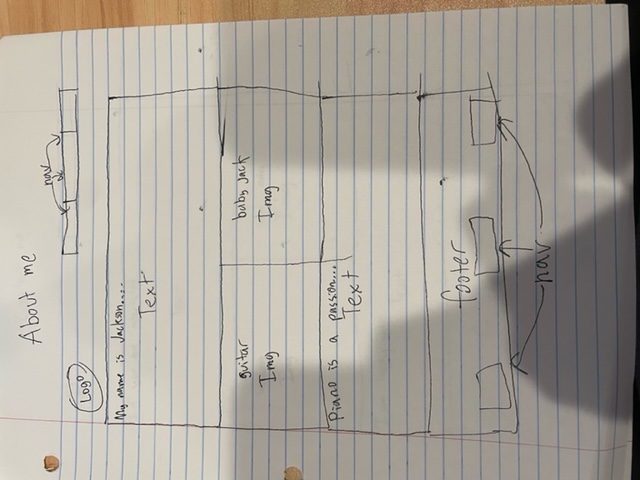 About me
nav
Logo
My name is Jackson....
Text
guitar
baby Jack
Img
Img
Piano is a passion...
Text
footer
nav